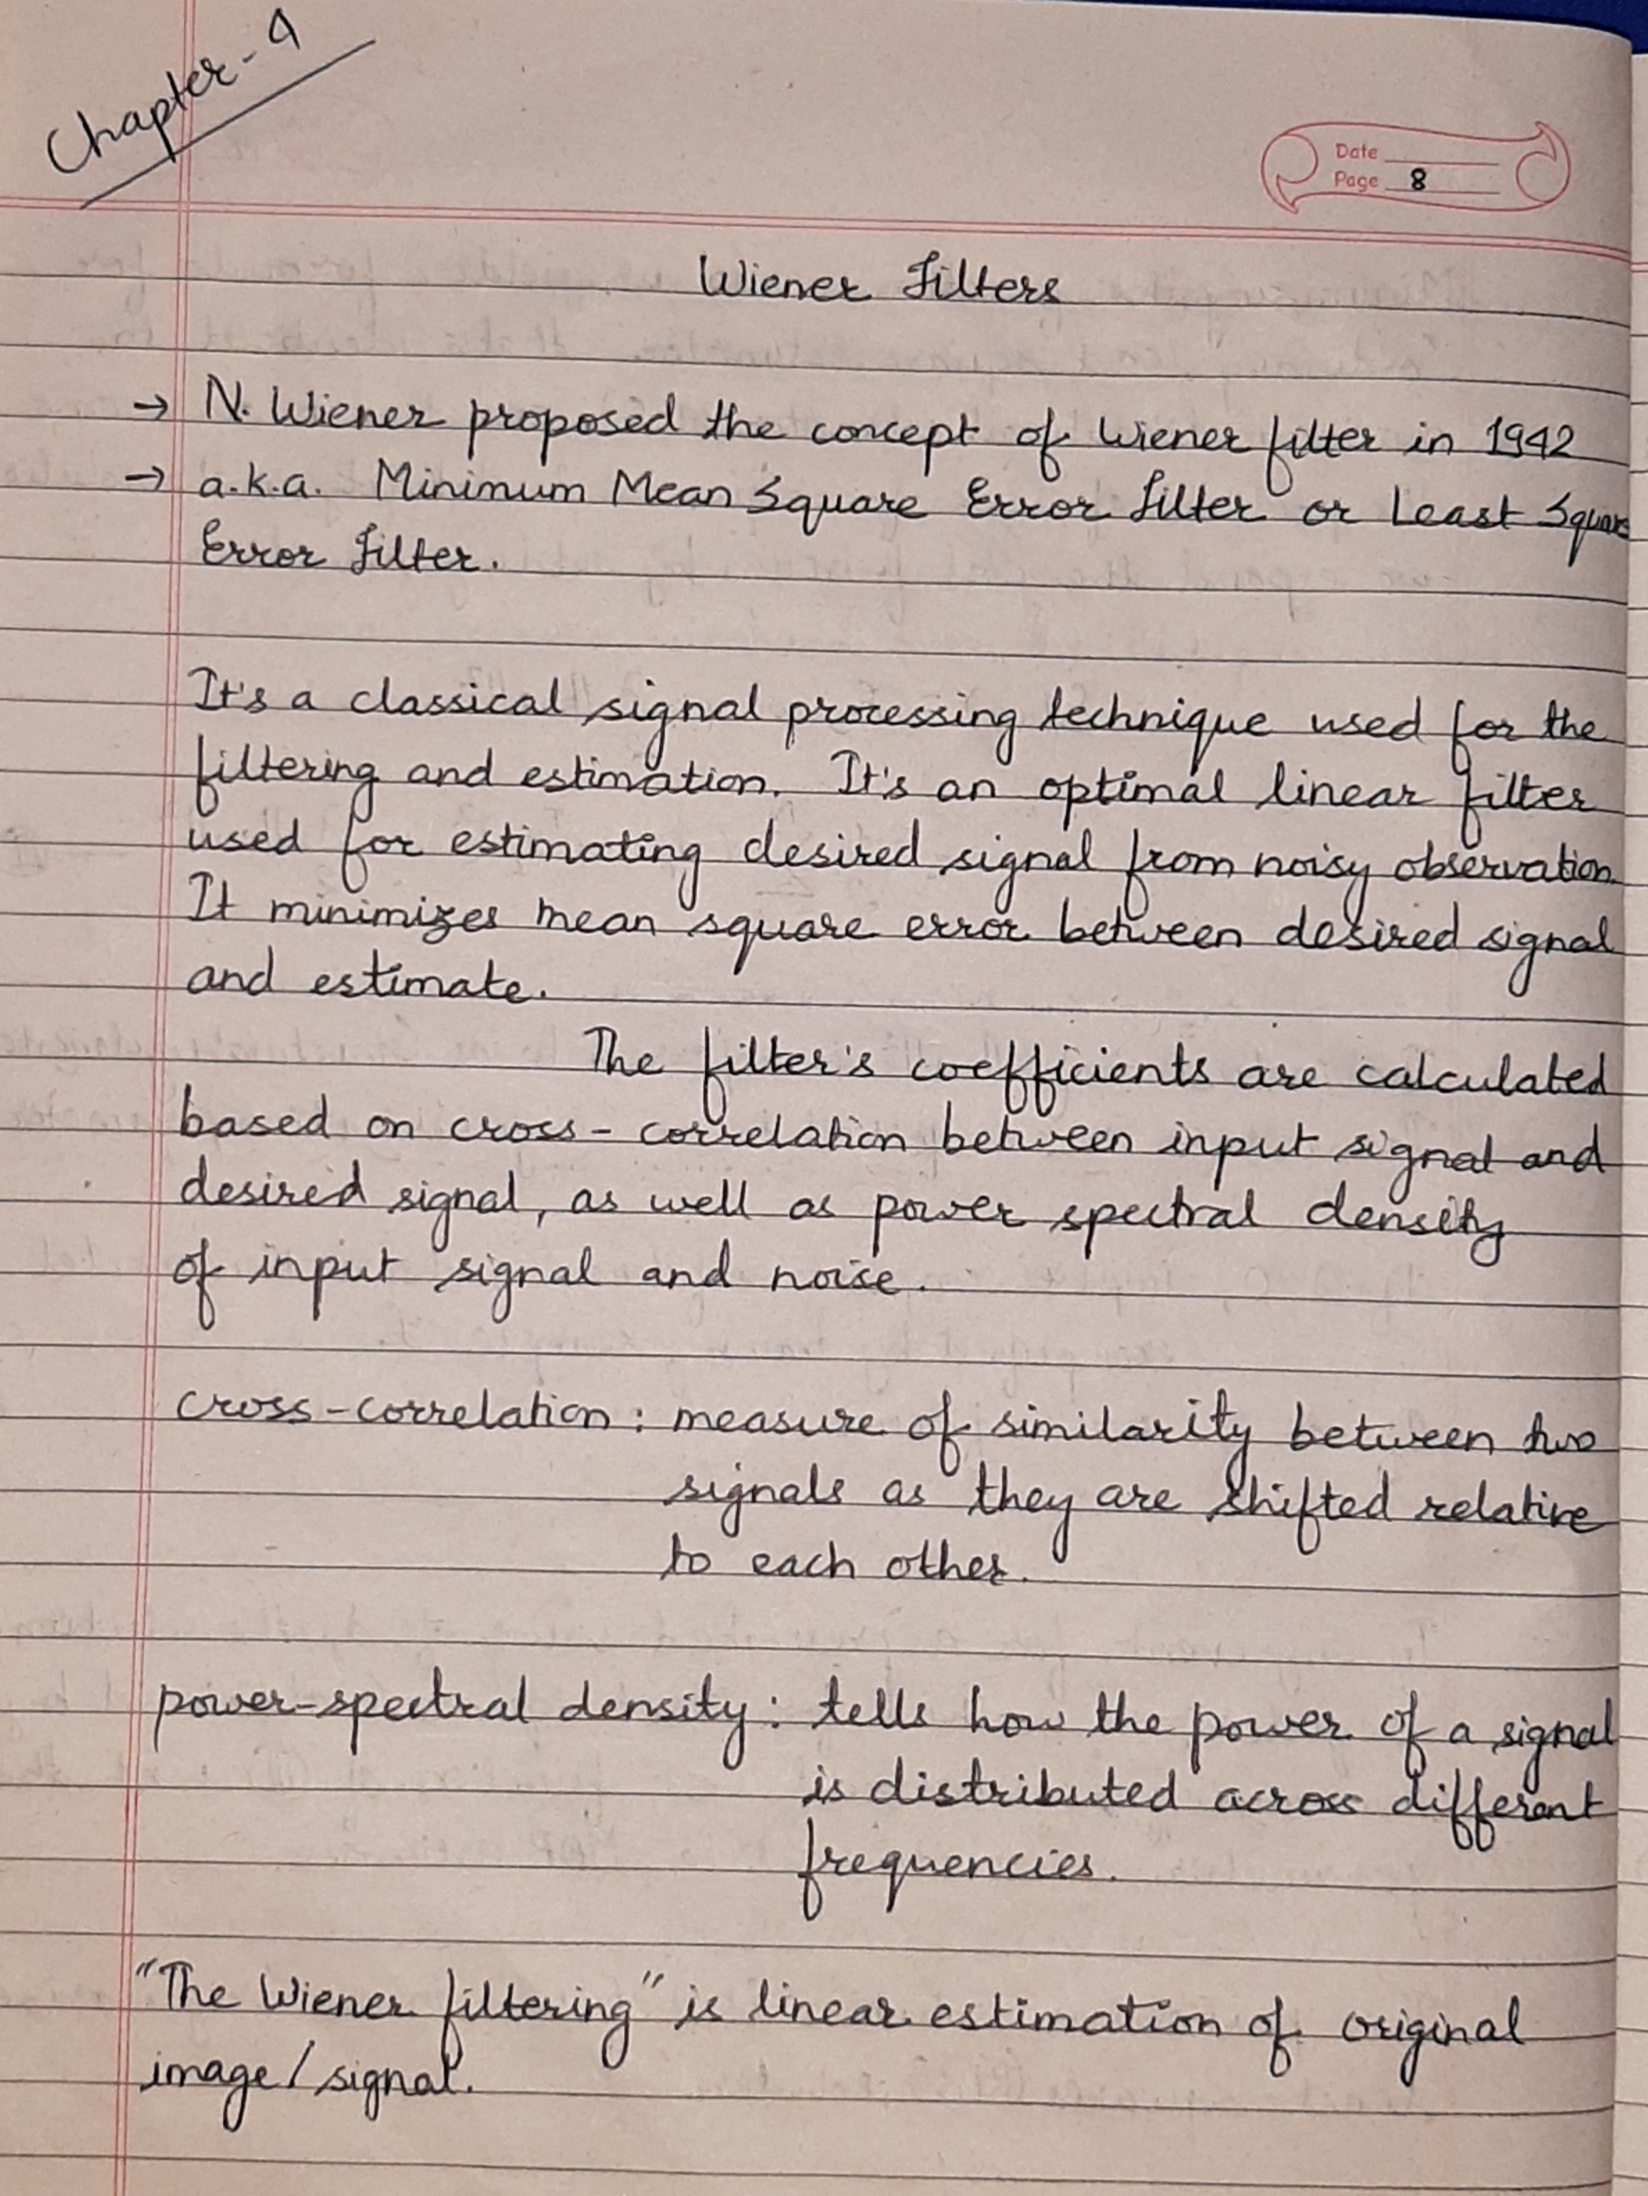 Chapter-9
Date
Page 8
Wiener Filters
→ N. Wiener proposed the concept of Wiener filter in 1942
→ a.k.a. Minimum Mean Square Error Filter or Least Square
Error Filter.
It's a classical signal processing technique used for the
filtering and estimation. It's an optimal linear filter
used for estimating desired signal from noisy observation.
It minimizes mean square error between desired signal
and estimate.
The filter's coefficients are calculated
based on cross-correlation between input signal and
desired signal, as well as power spectral density
of input signal and noise.
cross-correlation : measure of similarity between two
signals as they are shifted relative
to each other.
power-spectral density : tells how the power of a signal
is distributed across different
frequencies.
"The Wiener filtering" is linear estimation of original
image/signal.